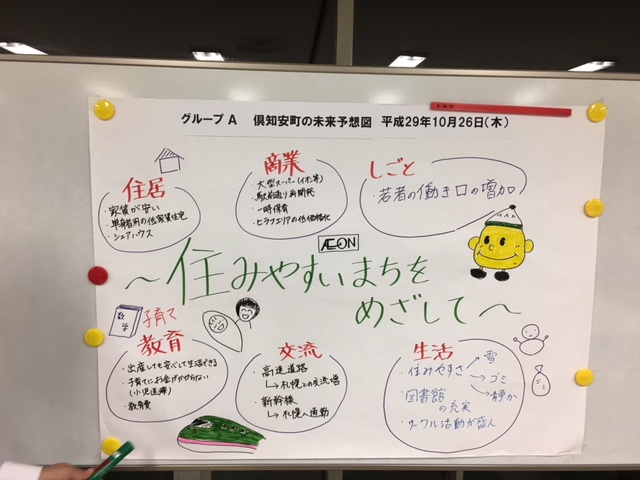 グループ A 倶知安町の未来予想図 平成29年10月26日(木)
住居
・家賃が安い
・単身者用の低家賃住宅
・シェアハウス
商業
・大型スーパー(イオン等)
・駅前通り再開発
・一時保育
・ヒラフエリアの低価格化
しごと
・若者の働き口の増加
AEON
～住みやすいまちを
めざして～
数学
子育て
教育
・出産しても安心して生活できる
・子育てにお金がかからない
(小児医療)
・教育費
交流
・高速道路
↳札幌との交流増
・新幹線
↳札幌へ通勤
生活
・住みやすさ
→雪
→ゴミ
→静か
・図書館
の充実
・サークル活動が盛ん
ゴミ